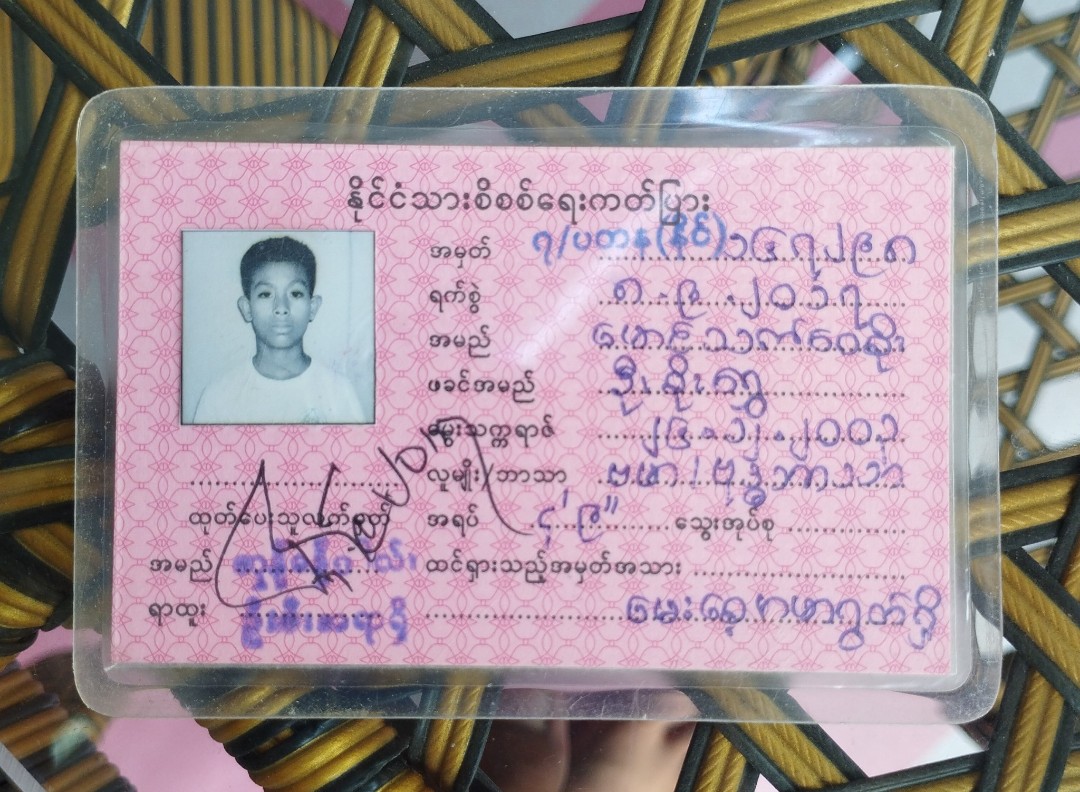 နိုင်ငံသားစိစစ်ရေးကတ်ပြား
အမှတ် ၇/ပတန(နိုင်)၁၄၇၂၉၈
ရက်စွဲ ၈.၉.၂၀၁၇
အမည် မောင်သက်ဝေစိုး
ဖခင်အမည် ဦးစိုး
မွေးသက္ကရာဇ် ၂၄.၁၂.၂၀၀၃
လူမျိုး/ဘာသာ ဗမာ/ဗုဒ္ဓဘာသာ
အရပ် ၄' ၉" သွေးအုပ်စု
ထင်ရှားသည့်အမှတ်အသား
မေးစေ့
ထုတ်ပေးသူလက်မှတ်
အမည်
ရာထူး ဦးစီးမှူး